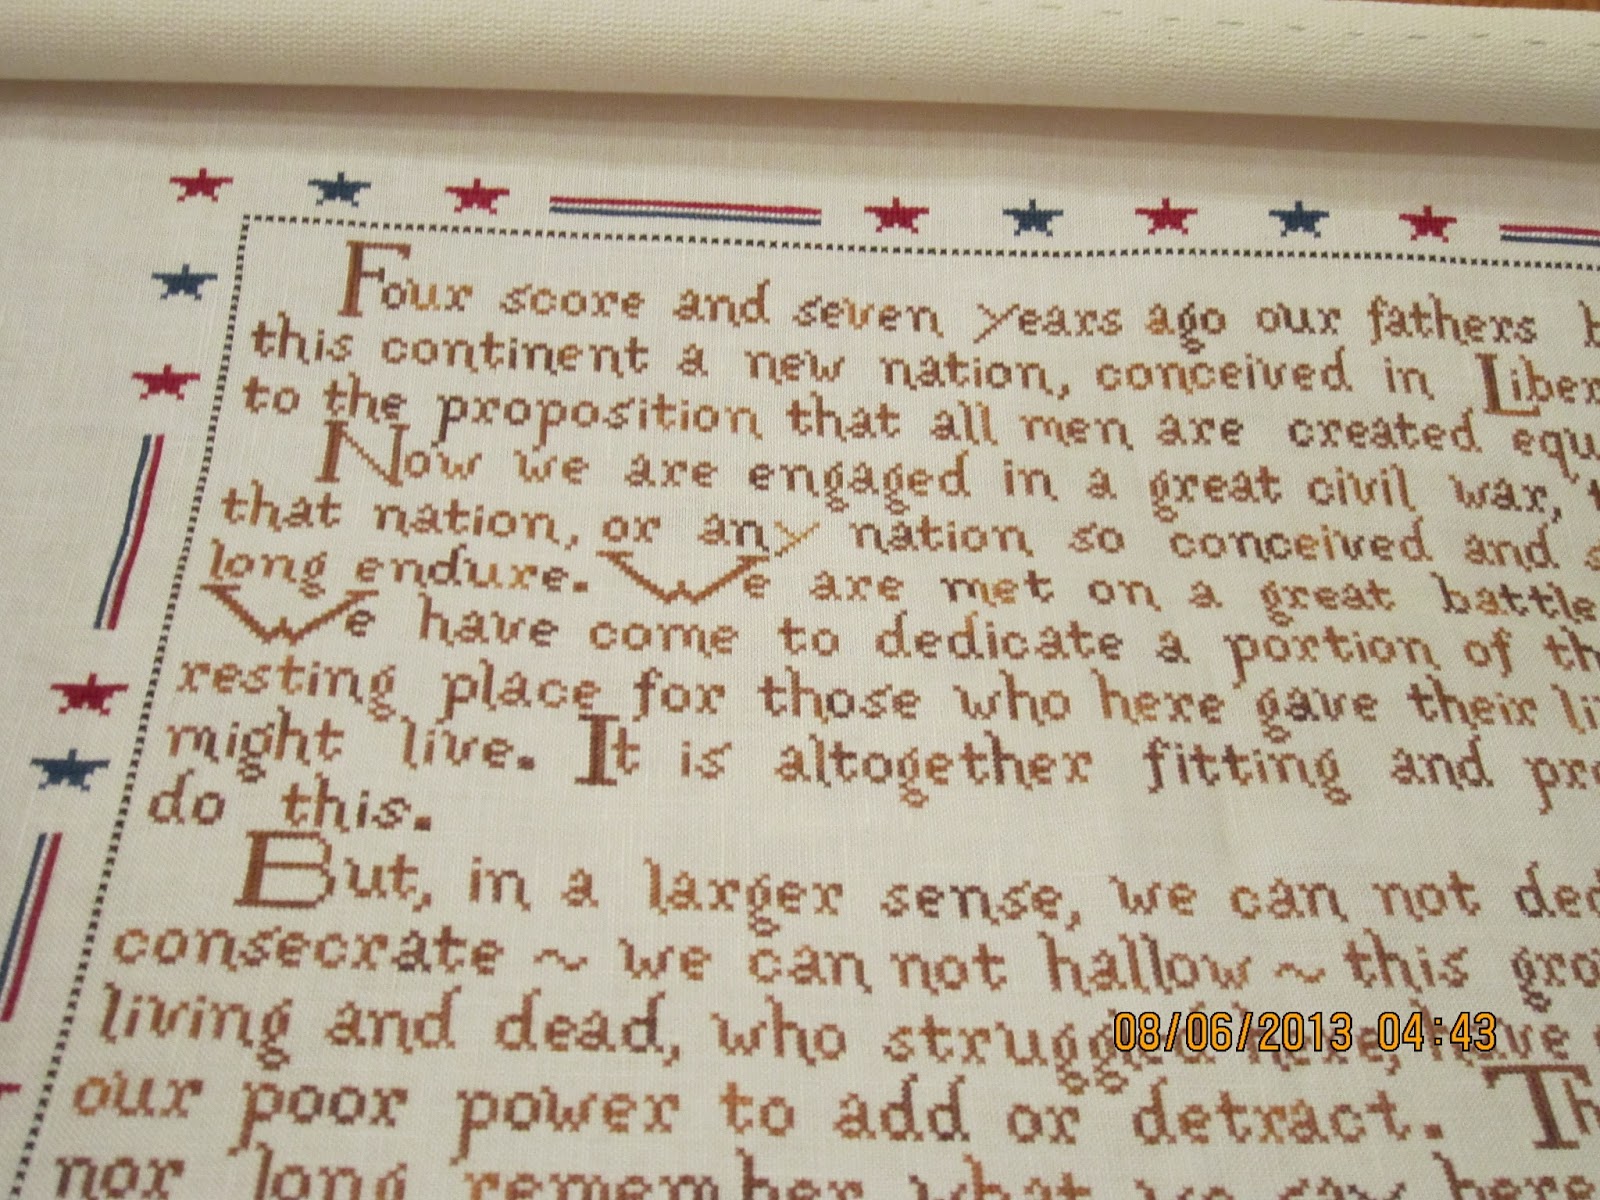 Four score and seven years ago our fathers
this continent a new nation, conceived in Liber
to the proposition that all men are created equ
Now we are engaged in a great civil war,
that nation, or any nation so conceived and
long endure. We are met on a great battle
We have come to dedicate a portion of th
resting place for those who here gave their li
might live. It is altogether fitting and pro
do this.
But, in a larger sense, we can not ded
consecrate ~ we can not hallow ~ this gro
living and dead, who struggled here, have
our poor power to add or detract. Th
nor long remember what we say here
08/06/2013 04:43